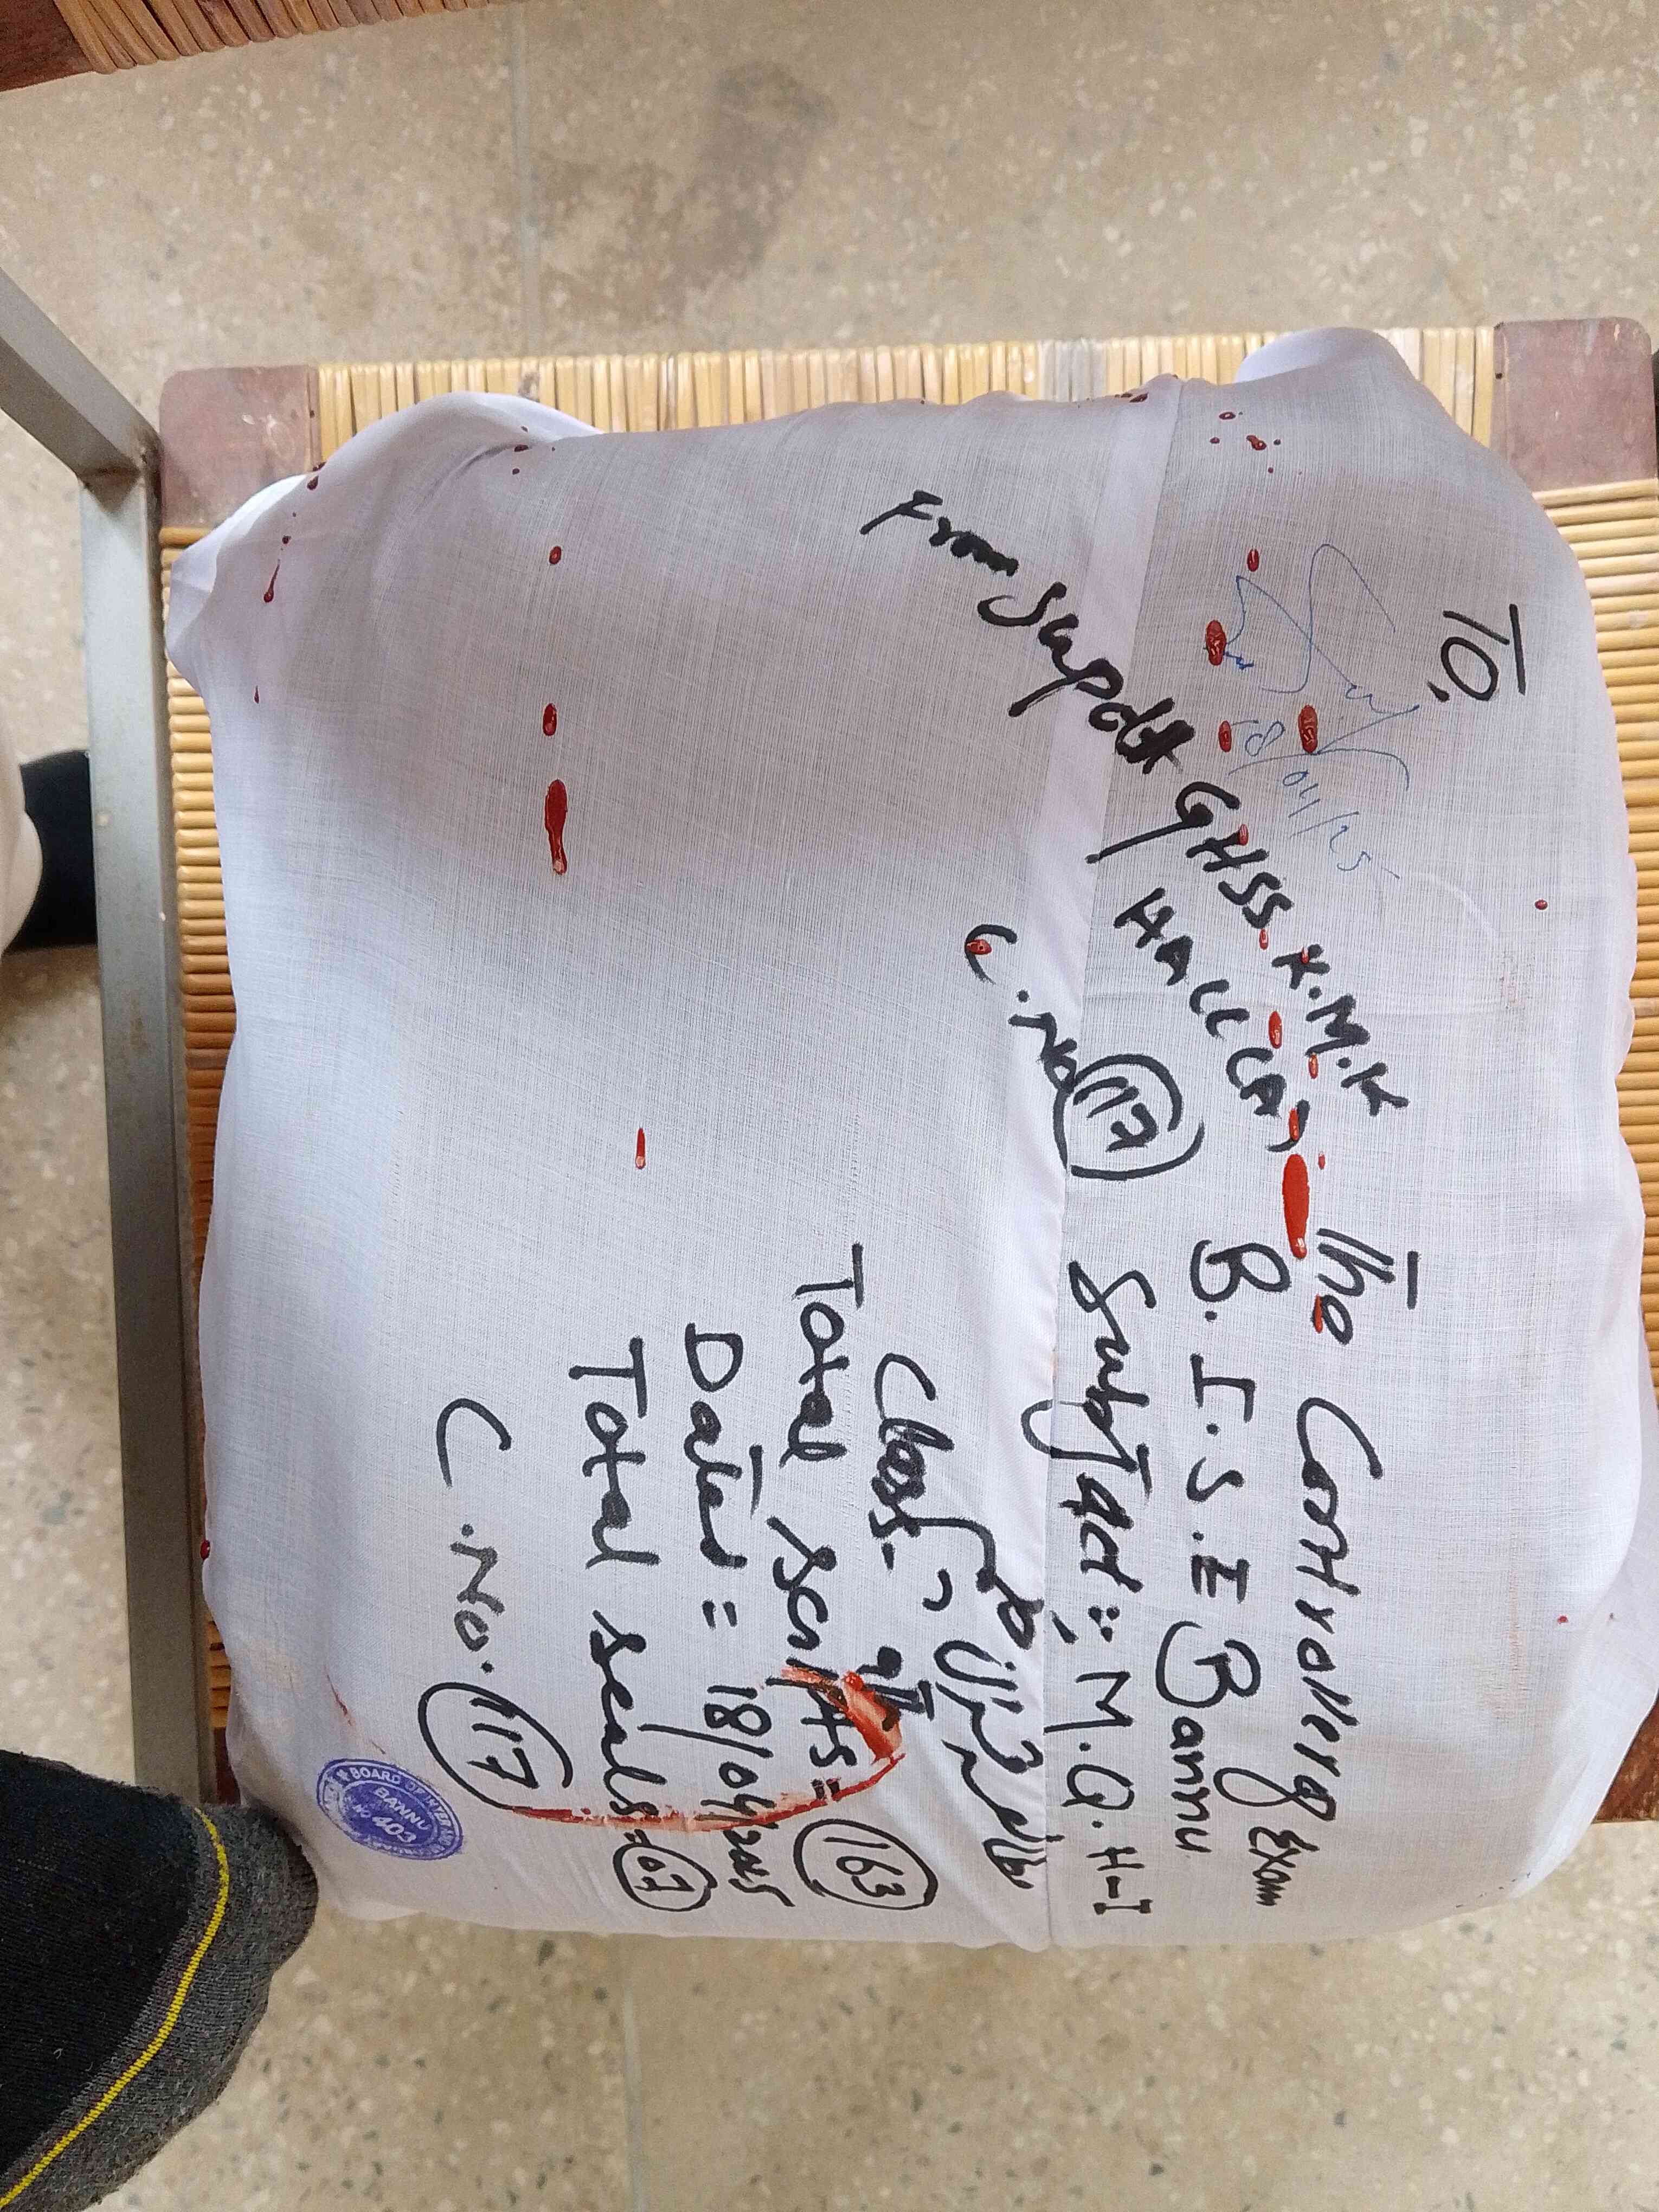 To,
18/04/25
The Controllerg Exam
B.I.S.E Bannu
Subject:: M.Q.H-I
مطالعہ قرآن
Class- 9th
Total Scripts= 163
Dated= 18/04/2025
Total seals= 07
C.No. 117
From Supdt GHSS K.M.K
HALL (A)
C.No 117
BOARD OF INTER
BANNU
NO 403